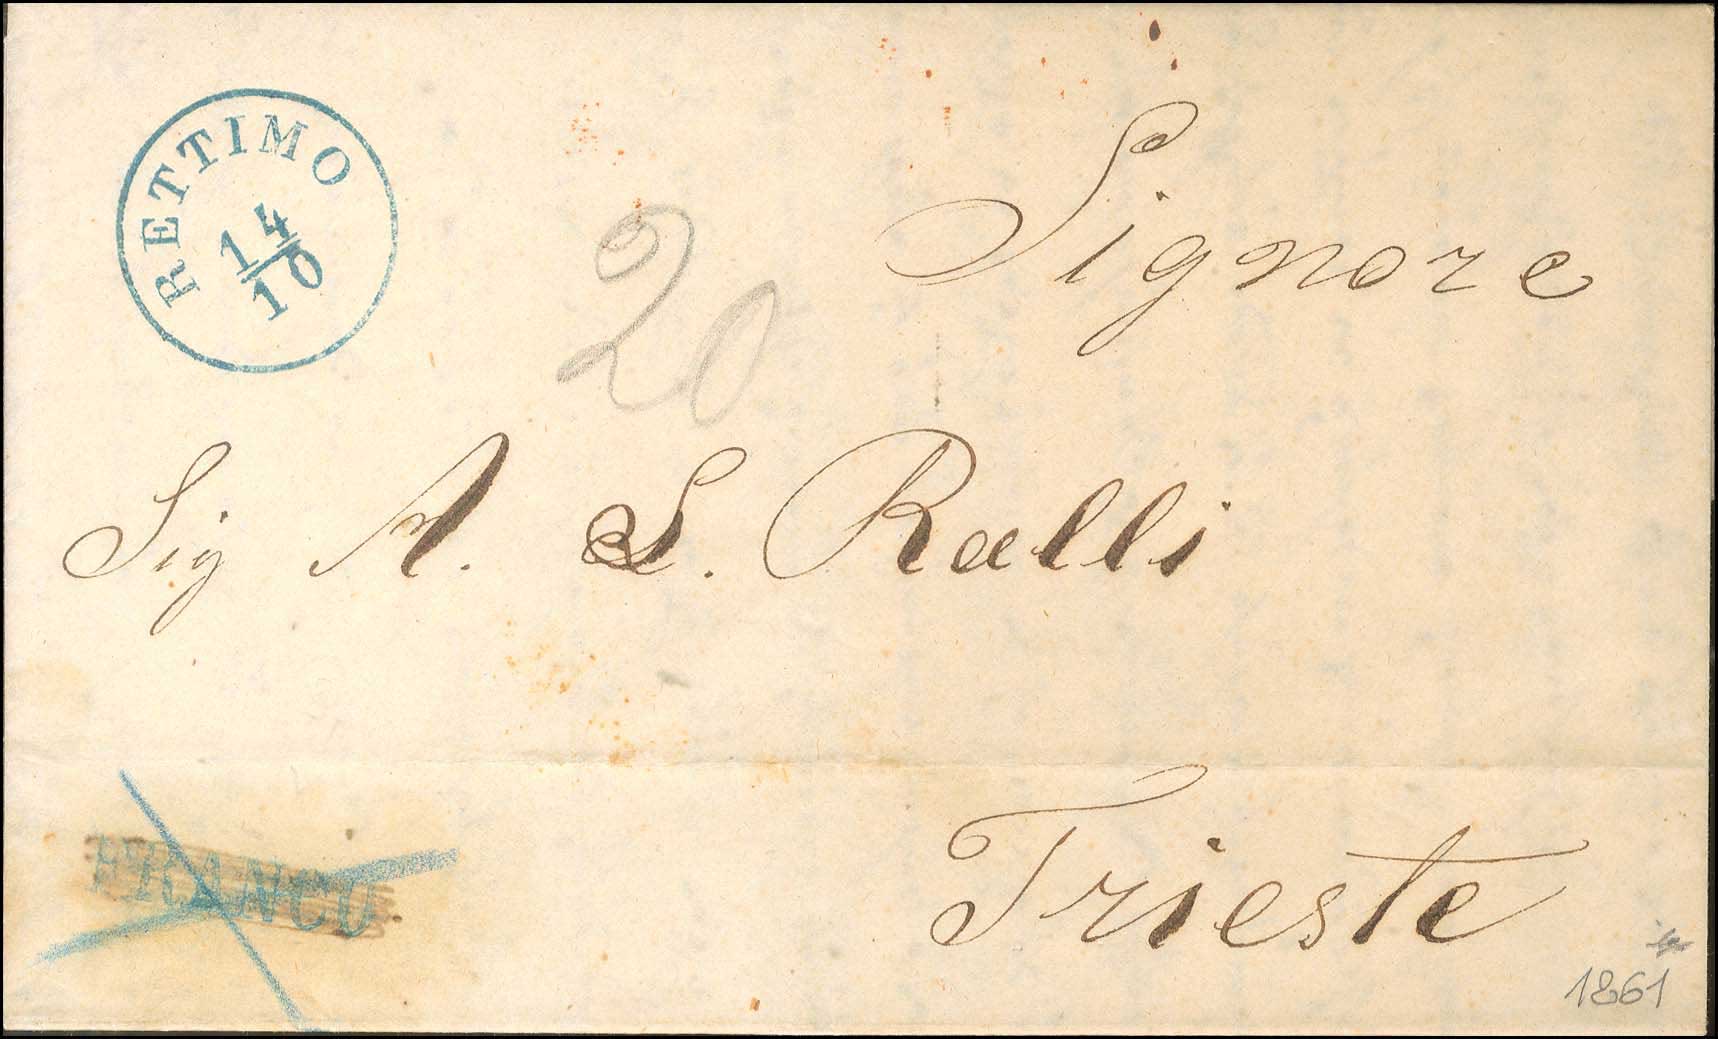 RETTIMO
14
10
20
Signore
Sig A. S. Ralli
FRANCO
Trieste
1861